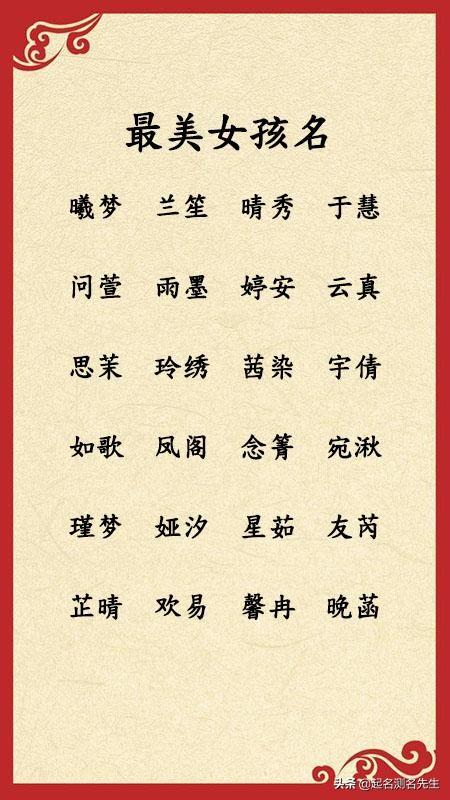 最美女孩名
曦梦 兰笙 晴秀 于慧
问萱 雨墨 婷安 云真
思茉 玲绣 茜染 宇倩
如歌 凤阁 念箐 宛湫
瑾梦 娅汐 星茹 友芮
芷晴 欢易 馨冉 晚菡
头条 @起名测名先生